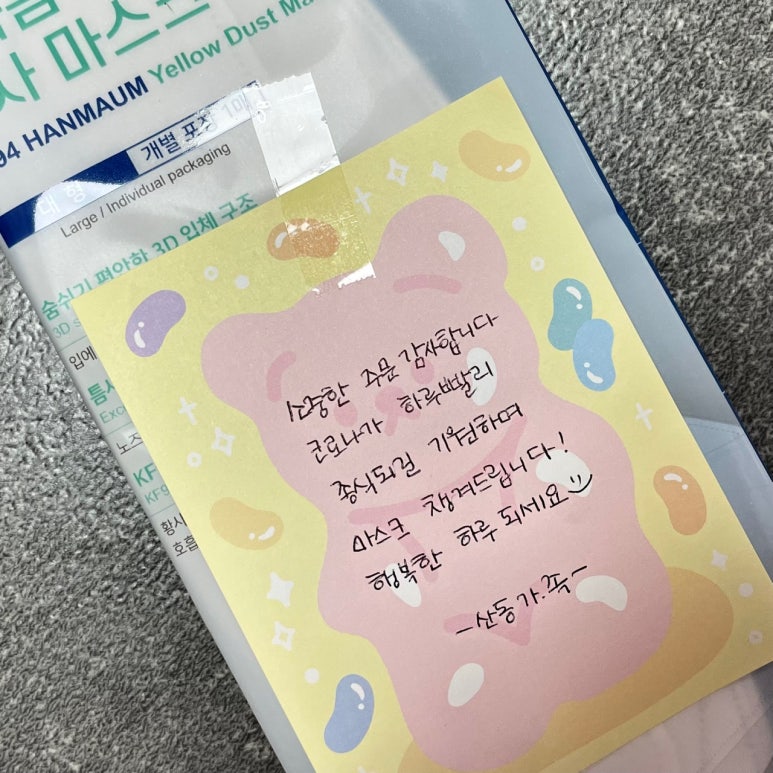 사 마스크
94 HANMAUM Yellow Dust Ma
대 형
개별 포장 1매
Large / Individual packaging
숨쉬기 편안한 3D 입체 구조
3D s
입에
틈새
Exc
노즈
KF
KF9
황사
호흡
소중한 주문 감사합니다
코로나가 하루빨리
종식되길 기원하며
마스크 챙겨드립니다!
행복한 하루 되세요
- 산동가.족 -